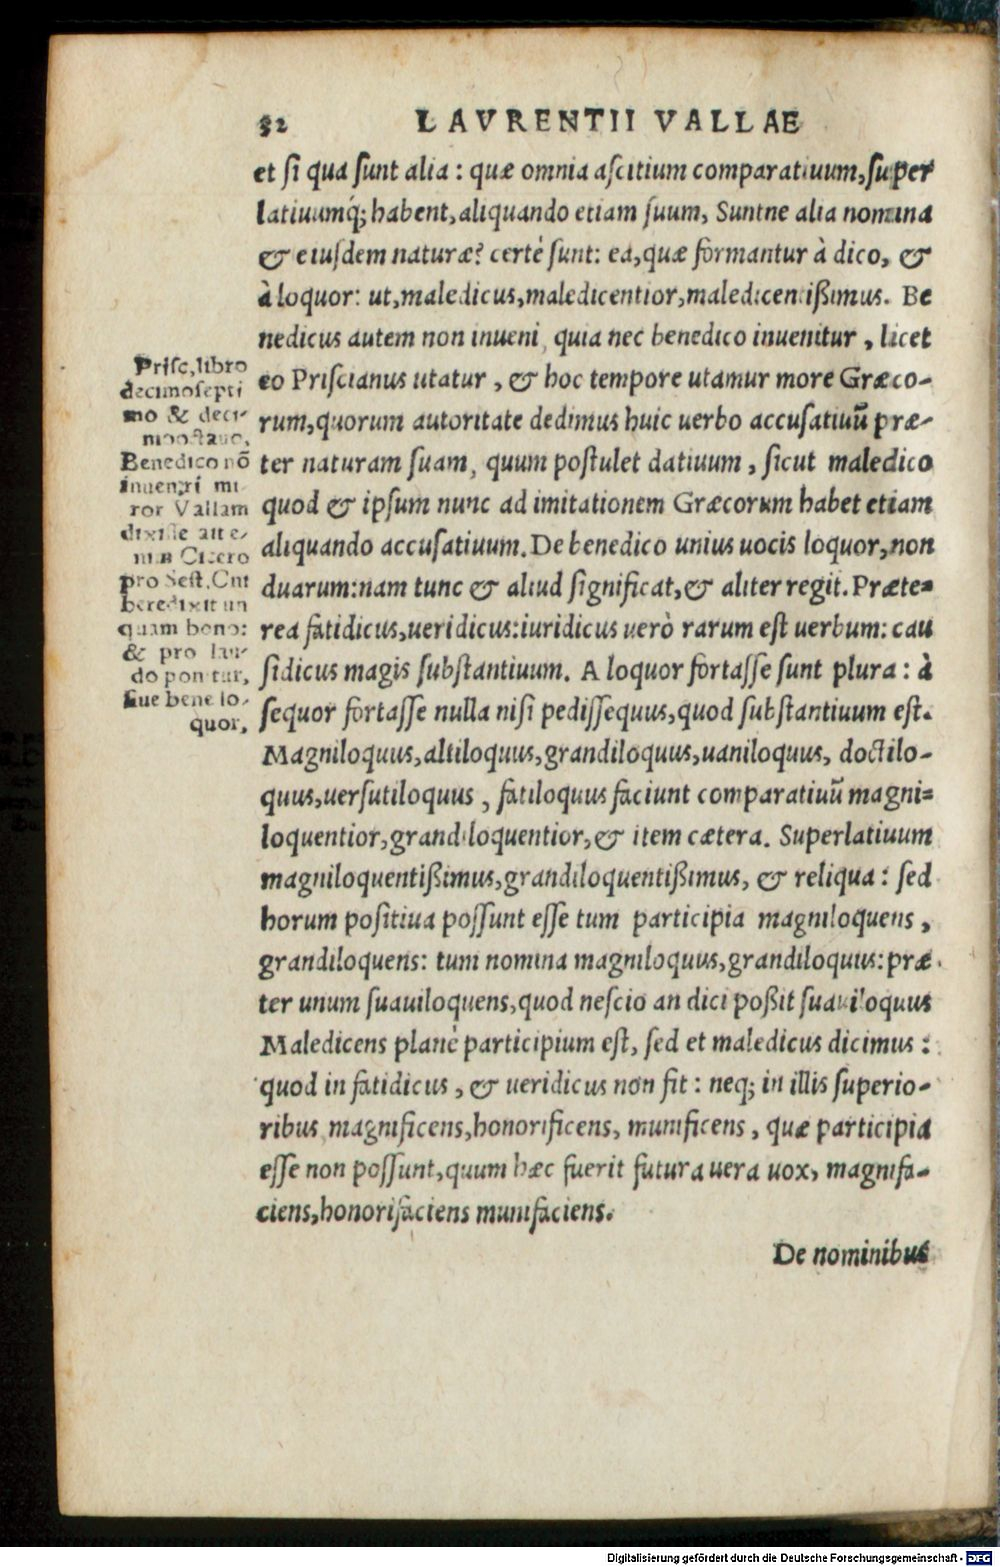 52 LAVRENTII VALLAE
et si qua sunt alia : quæ omnia ascitium comparatiuum, super
latiuumq́; habent, aliquando etiam suum, Suntne alia nomina
& eiusdem naturæ? certè sunt: ea, quæ formantur à dico, &
à loquor: ut, maledicus, maledicentior, maledicentißimus. Be
nedicus autem non inueni, quia nec benedico inuenitur, licet
eo Priscianus utatur, & hoc tempore utamur more Græco-
rum, quorum autoritate dedimus huic uerbo accusatiuũ præ-
ter naturam suam, quum postulet datiuum, sicut maledico
quod & ipsum nunc ad imitationem Græcorum habet etiam
aliquando accusatiuum. De benedico unius uocis loquor, non
duarum: nam tunc & aliud significat, & aliter regit. Præte=
rea fatidicus, ueridicus: iuridicus uerò rarum est uerbum: cau
sidicus magis substantiuum. A loquor fortasse sunt plura : à
sequor fortasse nulla nisi pedissequus, quod substantiuum est.
Magniloquus, altiloquus, grandiloquus, uaniloquus, doctilo-
quus, uersutiloquus, fatiloquus faciunt comparatiuũ magni=
loquentior, grandiloquentior, & item cætera. Superlatiuum
magniloquentißimus, grandiloquentißimus, & reliqua : sed
horum positiua possunt esse tum participia magniloquens,
grandiloquens: tum nomina magniloquus, grandiloquus: præ-
ter unum suauiloquens, quod nescio an dici poßit suauiloquus
Maledicens planè participium est, sed et maledicus dicimus :
quod in fatidicus, & ueridicus non fit : neq; in illis superio-
ribus magnificens, honorificens, munificens, quæ participia
esse non possunt, quum hæc fuerit futura uera uox, magnifa-
ciens, honorifaciens munifaciens.
De nominibus
Prisc, libro
decimosepti
mo & deci-
mooctauo,
Benedico nõ
inueniri mi
ror Vallam
dixisse atte-
nim Cicero
pro Sest. Cui
benedixit un
quam bono:
& pro lau-
do ponitur,
siue bene lo-
quor,
Digitalisierung gefördert durch die Deutsche Forschungsgemeinschaft - DFG